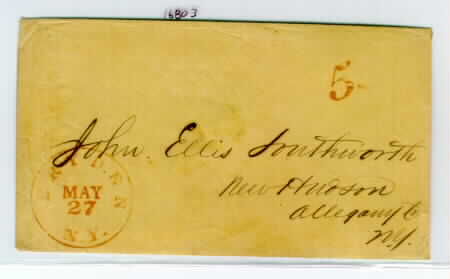 16803
5
John Ellis Southworth
New Hudson
Allegany Co
NY.
MAY
27
N.Y.